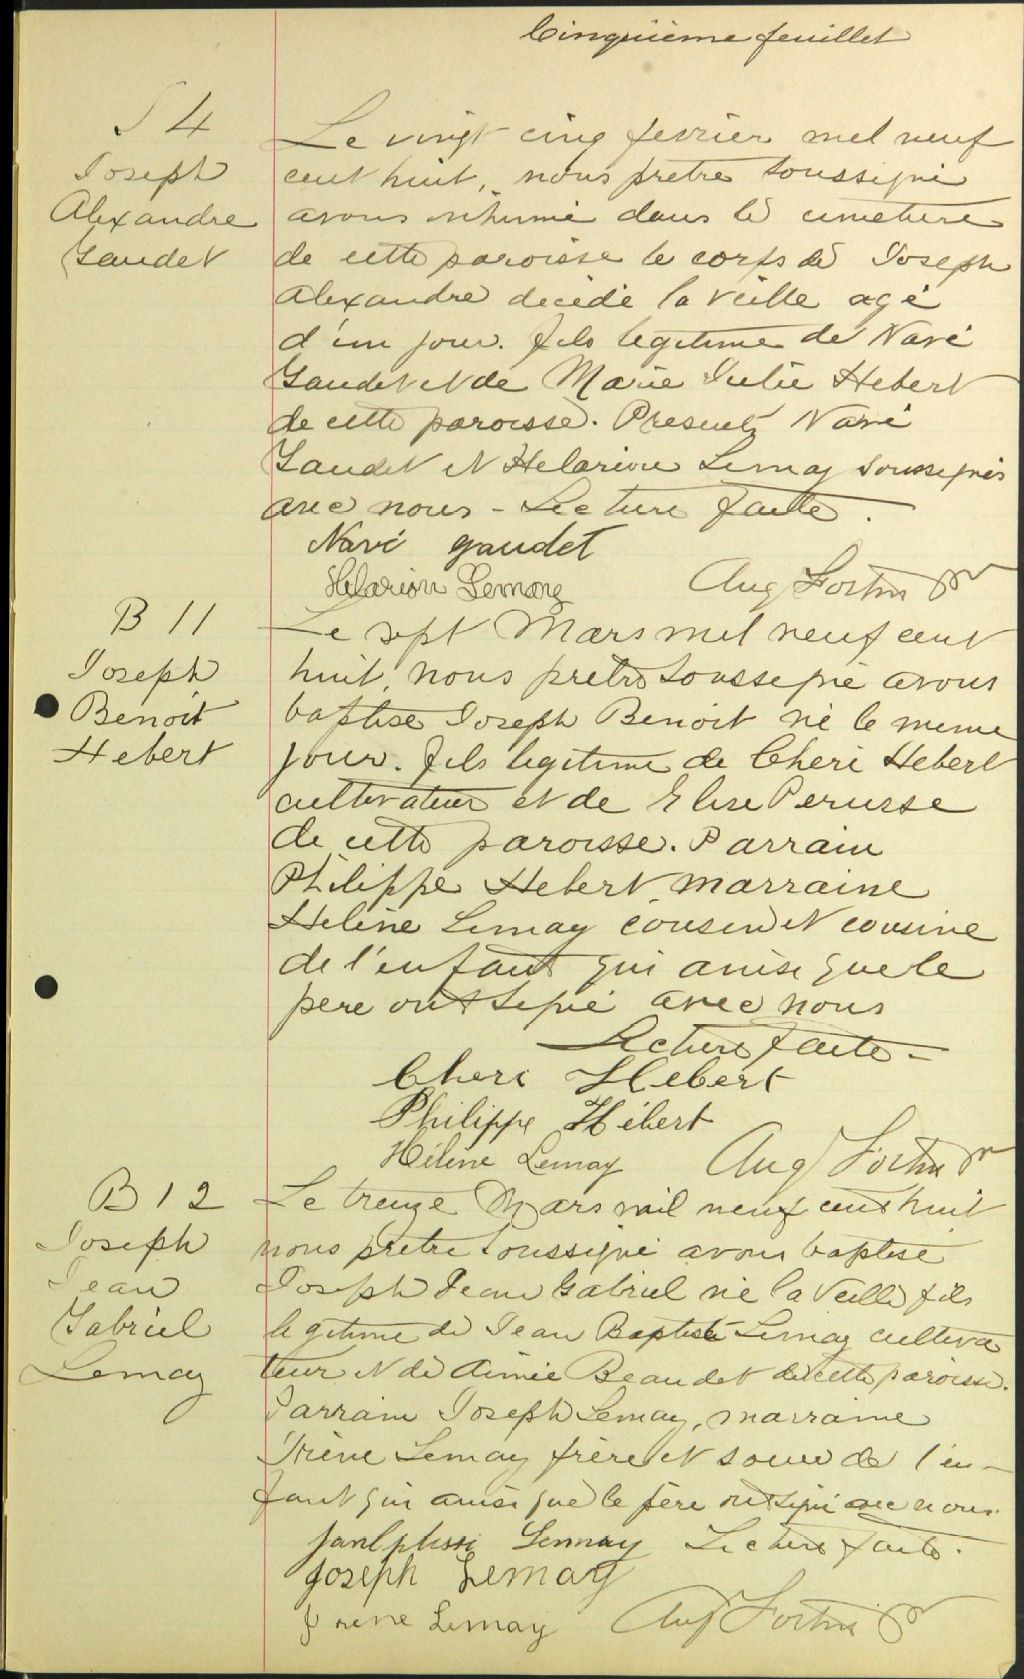 Cinquième feuillet
S 4
Joseph
Alexandre
Gaudet
Le vingt cinq fevrier mil neuf
cent huit, nous pretre soussigné
avons inhumé dans le cimetiere
de cette paroisse le corps de Joseph
Alexandre decedé la veille agé
d'un jour. fils legitime de Navé
Gaudet et de Marie Julie Hebert
de cette paroisse. Presents Navé
Gaudet et Helarion Lemay soussignés
avec nous - Lecture faite.
Navé gaudet
Hilarion Lemay
Aug Fortin ptr
B 11
Joseph
Benoit
Hebert
Le sept Mars mil neuf cent
huit, nous pretre soussigné avons
baptise Joseph Benoit né le meme
jour. fils legitime de Cheri Hebert
cultivateur et de Elise Perusse
de cette paroisse. Parrain
Philippe Hebert marraine
Heléne Lemay cousin et cousine
de l'enfant qui ainsi que le
pere ont signé avec nous
Lecture faite -
Cheri Hebert
Philippe Hébert
Héléne Lemay
Aug Fortin ptr
B 12
Joseph
Jean
Gabriel
Lemay
Le treize Mars mil neuf cent huit
nous pretre soussigné avons baptisé
Joseph Jean Gabriel né la veille fils
legitime de Jean Baptiste Lemay cultiva
teur et de Aimée Beaudet de cette paroisse.
Parrain Joseph Lemay, marraine
Iréne Lemay frère et soeur de l'en-
fant qui ainsi que le père ont signé avec nous.
Lemay Lecture faite.
Joseph Lemay
Irene Lemay
Aug Fortin ptr